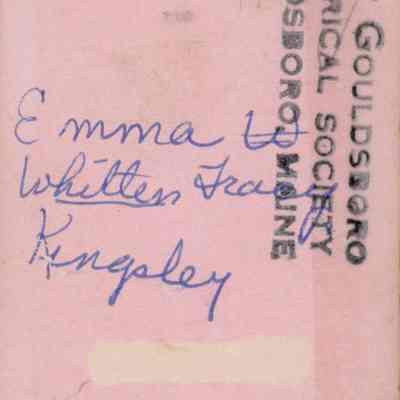 Emma W
Whitten Tracy
Kingsley
GOULDSBORO
RICAL SOCIETY
DSBORO, MAINE